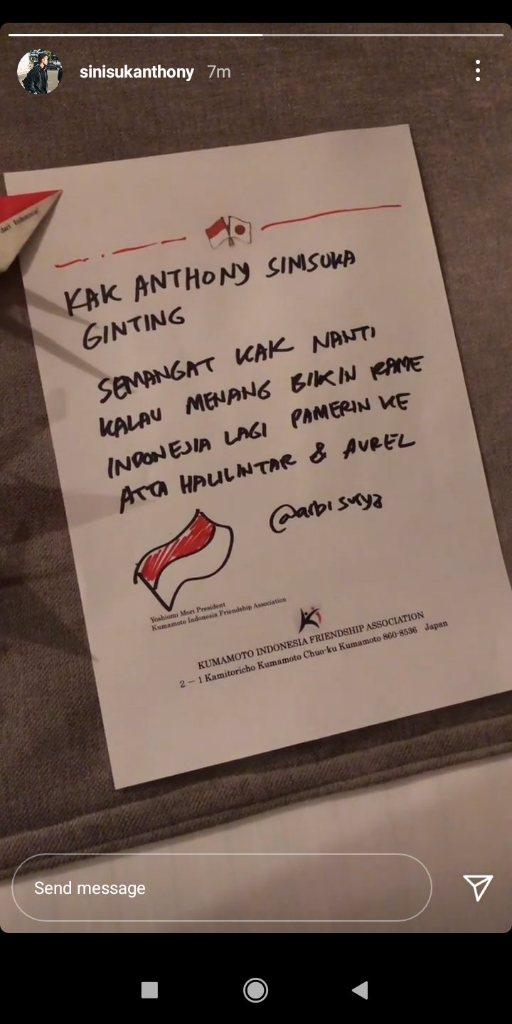 sinisukanthony 7m
KAK ANTHONY SINISUKA
GINTING
SEMANGAT KAK NANTI
KALAU MENANG BIKIN RAME
INDONESIA LAGI PAMERIN KE
ATTA HALILINTAR & AUREL
@arbisurya
Yoshiomi Mori President
Kumamoto Indonesia Friendship Association
KUMAMOTO INDONESIA FRIENDSHIP ASSOCIATION
2 - 1 Kamitoricho Kumamoto Chuo-ku Kumamoto 860-8536 Japan
Send message